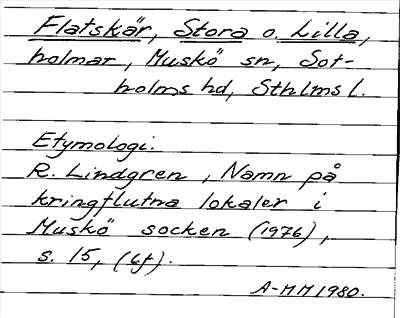 Flatskär, Stora o. Lilla,
holmar, Muskö sn, Sot-
holms hd, Sthlms l.
Etymologi.
R. Lindgren, Namn på
kringflutna lokaler i
Muskö socken (1976),
s. 15, (6f).
A-MM 1980.